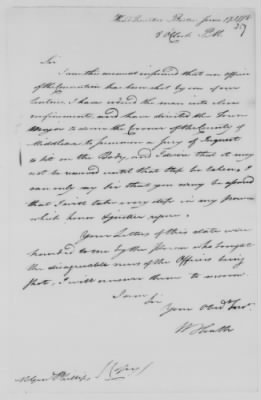 Head Quarters Boston June 17 1778
5 oClock P.M.
Sir
I am this moment informed that an officer
of the Convention has been shot by one of our
Centinels. I have ordered the man into close
confinement, and have directed the Town
Major to warn the Coroner of the County of
Middlesex to summon a Jury of Inquest
to sit on the Body, and I desire that it may
not be removed until that step be taken, I
can only say Sir that you may be assured
that I will take every step in my power
which honor & justice require.
Your Letters of this date were
handed to me by the person who brought
the disagreeable news of the Officers being
shot, I will answer them to morrow.
I am Sir
Your Obed. Serv.
W Heath
M Gen Phillips (Copy)